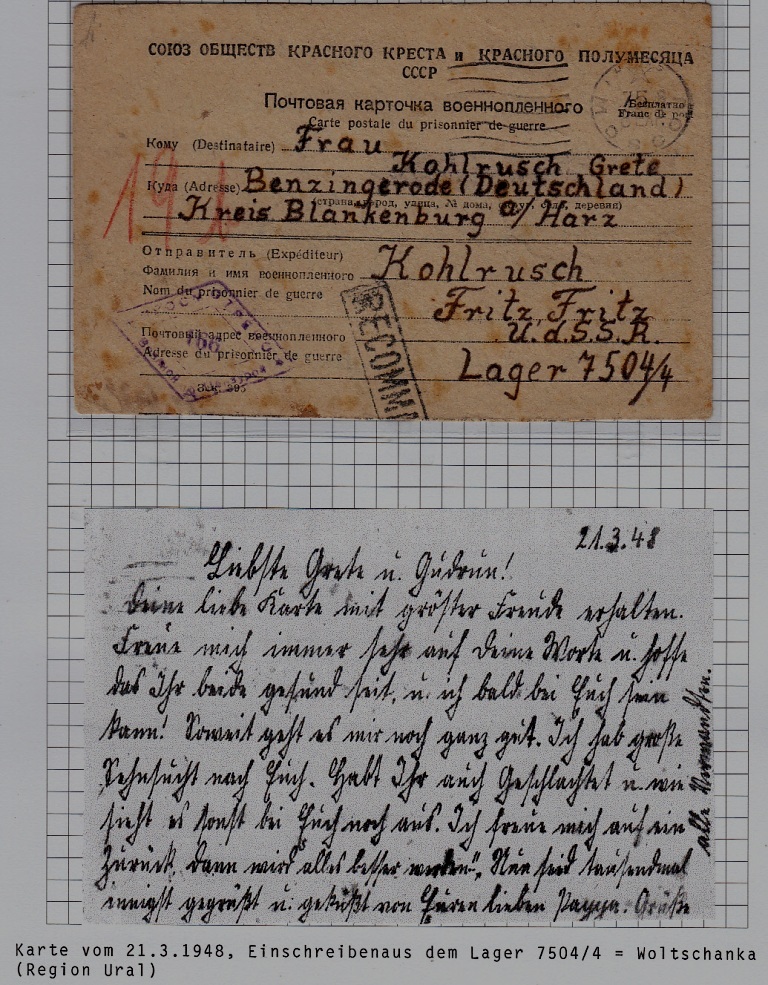 СОЮЗ ОБЩЕСТВ КРАСНОГО КРЕСТА и КРАСНОГО ПОЛУМЕСЯЦА
СССР
Почтовая карточка военнопленного
Carte postale du prisonnier de guerre
Бесплатно
Franc de port
Кому (Destinataire) Frau
Kohlrusch Grete
Куда (Adresse) Benzingerode (Deutschland)
(страна, город, улица, № дома, село, деревня)
Kreis Blankenburg a/Harz
Отправитель (Expéditeur)
Фамилия и имя военнопленного Kohlrusch
Nom du prisonnier de guerre Fritz Fritz
Почтовый адрес военнопленного U.d.S.S.R.
Adresse du prisonnier de guerre Lager 7504/4
RECOMM
21.3.48
Liebste Grete u. Gudrun!
Deine liebe Karte mit größter Freude erhalten.
Freue mich immer sehr auf Deine Worte u. hoffe
das Ihr beide gesund seit, u. ich bald bei Euch sein
kann! Soweit geht es mir noch ganz gut. Ich hab große
Sehnsucht nach Euch. Habt Ihr auch Geschlachtet u. wie
sieht es sonst bei Euch noch aus. Ich freue mich auf ein
Zurück, dann wird alles besser werden". Nun seid tausendmal
innigst gegrüßt u. geküßt von Euren lieben Pappa. Grüße
alle Verwandten.
Karte vom 21.3.1948, Einschreibenaus dem Lager 7504/4 = Woltschanka
(Region Ural)